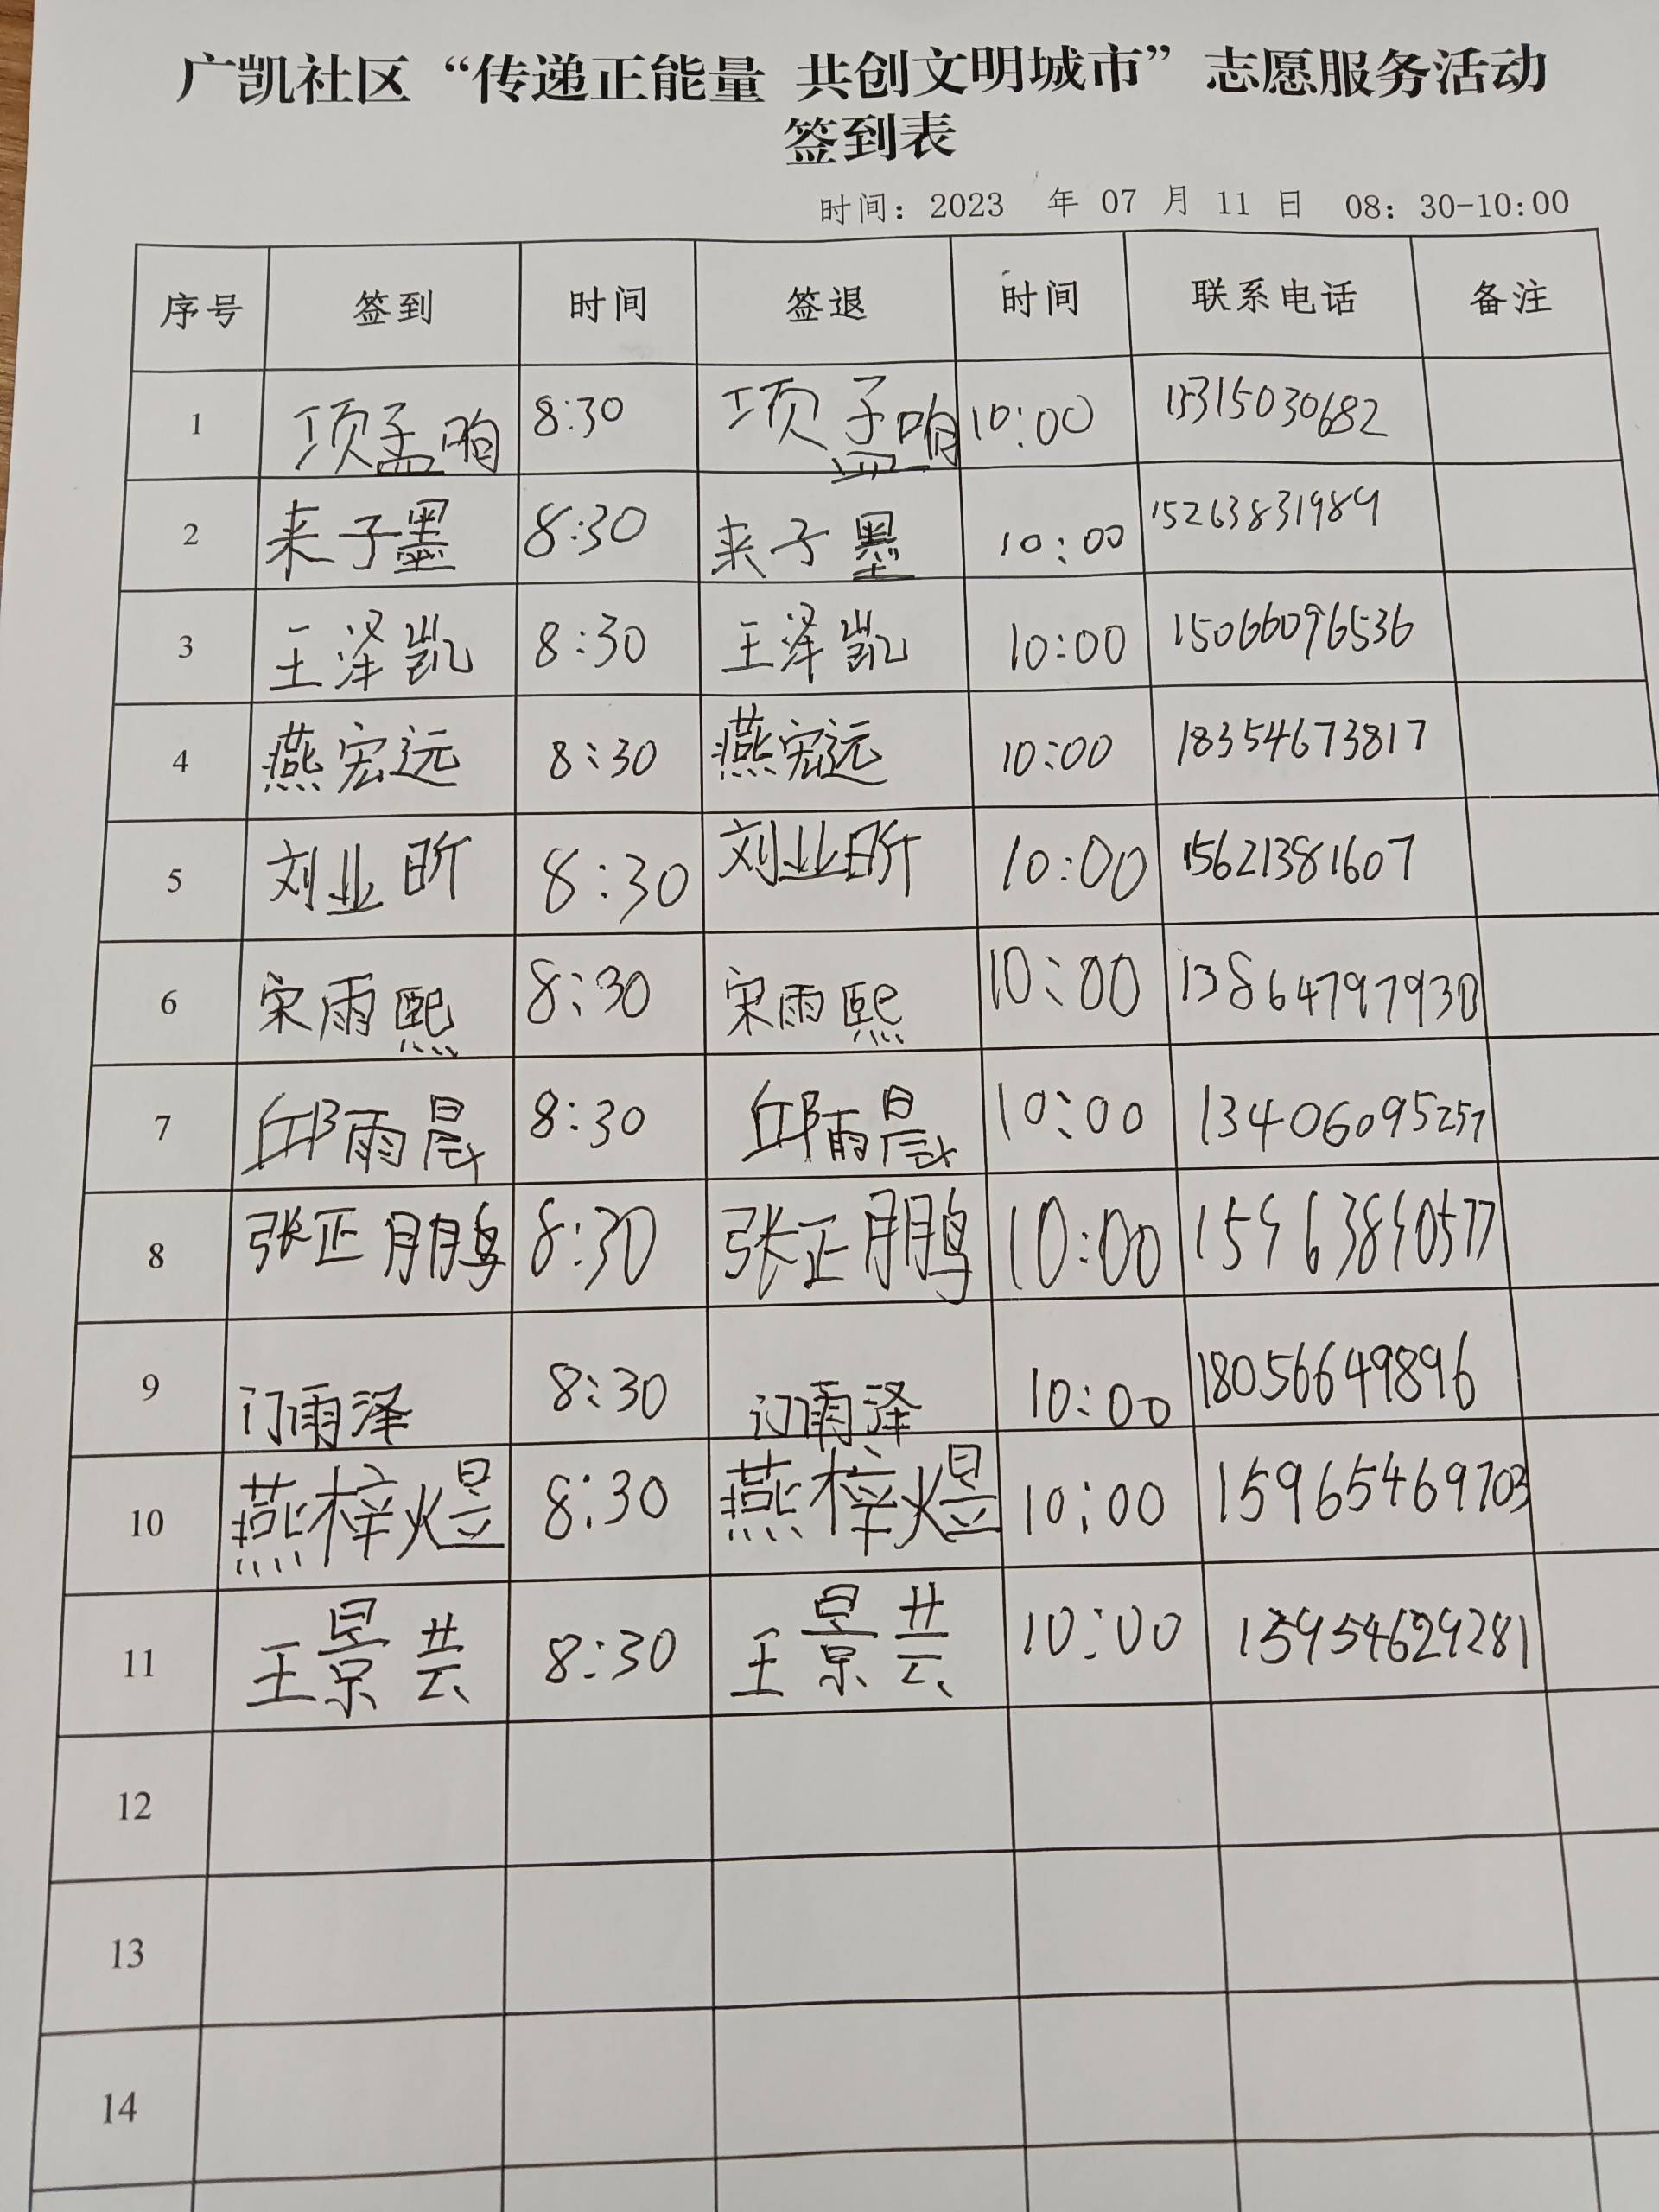 广凯社区“传递正能量 共创文明城市”志愿服务活动
签到表
时间：2023 年 07 月 11 日 08：30-10:00
序号 签到 时间 签退 时间 联系电话 备注
1 项孟晌 8:30 项孟晌 10:00 15315030682
2 来子墨 8:30 来子墨 10:00 15263831989
3 王泽凯 8:30 王泽凯 10:00 15066096536
4 燕宏远 8:30 燕宏远 10:00 18354673817
5 刘业昕 8:30 刘业昕 10:00 15621381607
6 宋雨熙 8:30 宋雨熙 10:00 13864797930
7 邱雨晨 8:30 邱雨晨 10:00 13406095257
8 张正鹏 8:30 张正鹏 10:00
9 订雨泽 8:30 订雨泽 10:00 18056649896
10 燕梓煜 8:30 燕梓煜 10:00 15965469703
11 王景芸 8:30 王景芸 10:00 15954629281
12
13
14